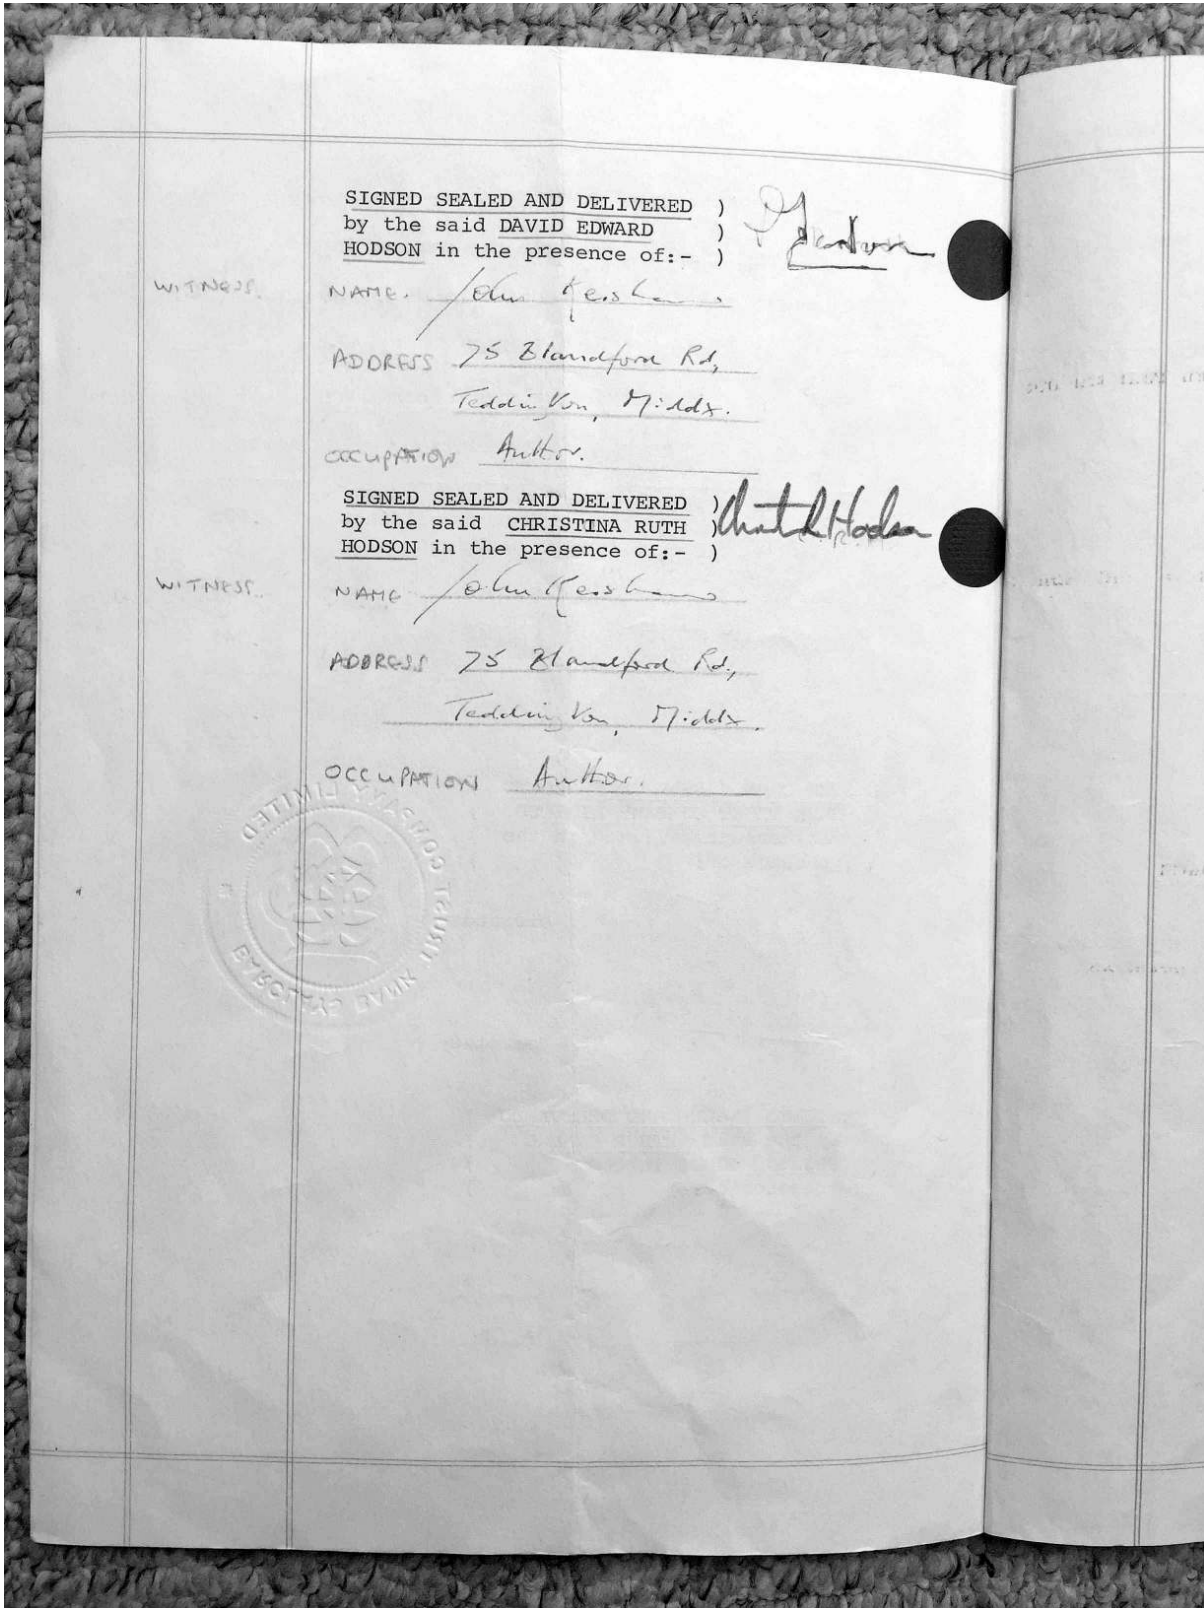 SIGNED SEALED AND DELIVERED )
by the said DAVID EDWARD )
HODSON in the presence of:- )
WITNESS. NAME. John
ADDRESS 75 Blandford Rd,
Teddington, Middx.
OCCUPATION Author.
SIGNED SEALED AND DELIVERED )
by the said CHRISTINA RUTH )
HODSON in the presence of:- )
WITNESS. NAME John
ADDRESS 75 Blandford Rd.,
Teddington, Middx.
OCCUPATION Author.
BARCLAYS BANK TRUST COMPANY LIMITED